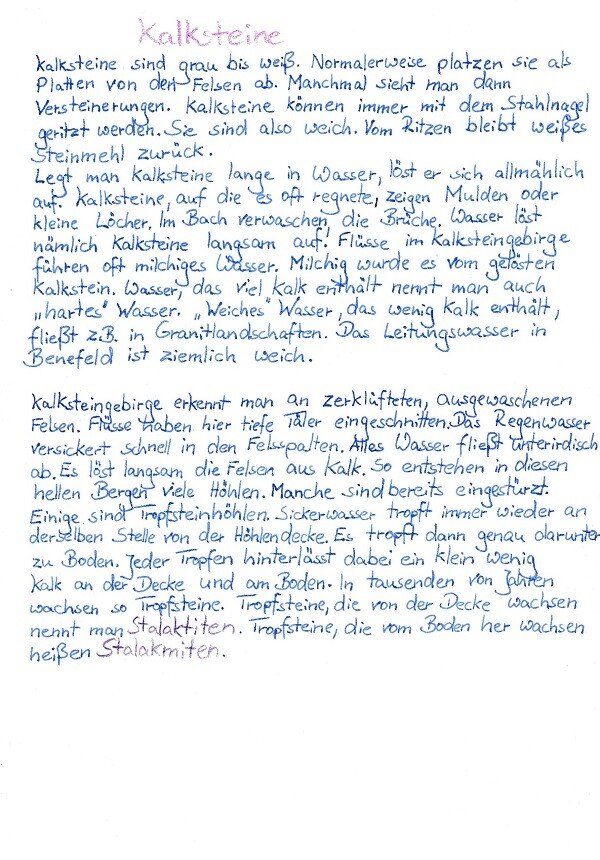 Kalksteine
Kalksteine sind grau bis weiß. Normalerweise platzen sie als
Platten von den Felsen ab. Manchmal sieht man dann
Versteinerungen. Kalksteine können immer mit dem Stahlnagel
geritzt werden. Sie sind also weich. Vom Ritzen bleibt weißes
Steinmehl zurück.
Legt man Kalksteine lange in Wasser, löst er sich allmählich
auf. Kalksteine, auf die es oft regnete, zeigen Mulden oder
kleine Löcher. Im Bach verwaschen die Brüche. Wasser löst
nämlich Kalksteine langsam auf. Flüsse im Kalksteingebirge
führen oft milchiges Wasser. Milchig wurde es vom gelösten
Kalkstein. Wasser, das viel Kalk enthält nennt man auch
„hartes" Wasser. „Weiches" Wasser, das wenig Kalk enthält,
fließt z.B. in Granitlandschaften. Das Leitungswasser in
Benefeld ist ziemlich weich.
Kalksteingebirge erkennt man an zerklüfteten, ausgewaschenen
Felsen. Flüsse haben hier tiefe Täler eingeschnitten. Das Regenwasser
versickert schnell in den Felsspalten. Alles Wasser fließt unterirdisch
ab. Es löst langsam die Felsen aus Kalk. So entstehen in diesen
hellen Bergen viele Höhlen. Manche sind bereits eingestürzt.
Einige sind Tropfsteinhöhlen. Sickerwasser tropft immer wieder an
derselben Stelle von der Höhlendecke. Es tropft dann genau darunter
zu Boden. Jeder Tropfen hinterlässt dabei ein klein wenig
Kalk an der Decke und am Boden. In tausenden von Jahren
wachsen so Tropfsteine. Tropfsteine, die von der Decke wachsen
nennt man Stalaktiten. Tropfsteine, die vom Boden her wachsen
heißen Stalakmiten.